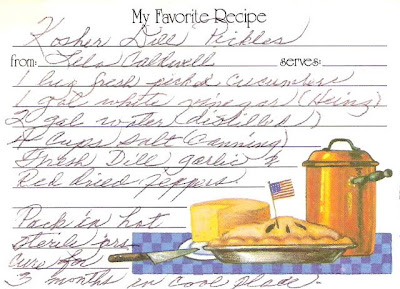 My Favorite Recipe
Kosher Dill Pickles
from: Lela Caldwell serves:
1 bu fresh picked cucumbers
1 gal white vinegar (Heinz)
2 gal water (distilled)
4 cups salt (canning)
Fresh Dill garlic &
Red dried peppers
Pack in hot
sterile jars
cure for
3 months in cool place.